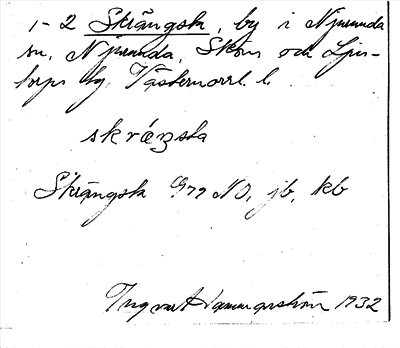 1-2 Skrängsta, by i Njurunda
sn, Njurunda, Sköns och Ljus-
torps tg, Västernorrl. l.
skrázsta
Skrängsta 6/72 NO, jb, kb
Ingvar Hammarström 1932